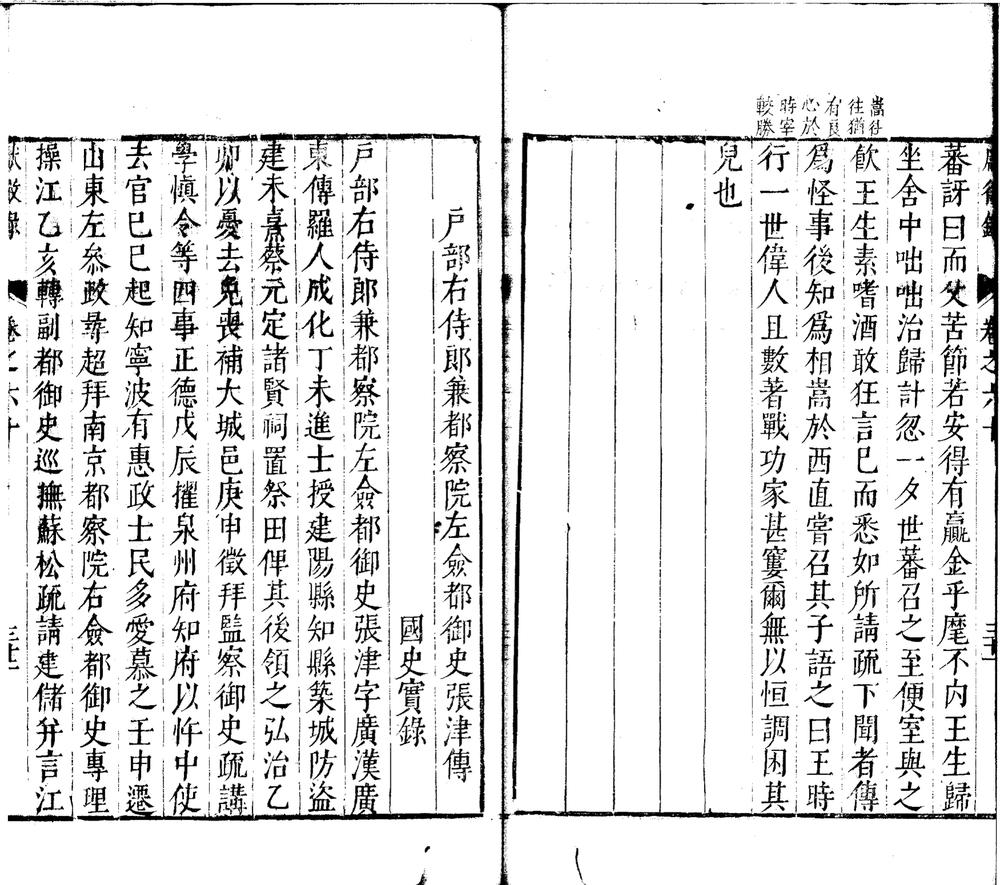 嵩往
往猶
有良
心於
時宰
較勝
蕃訝曰而父苦節若安得有贏金乎麾不内王生歸
坐舍中咄咄治歸計忽一夕世蕃召之至便室與之
飲王生素嗜酒敢狂言已而悉如所請疏下聞者傳
爲怪事後知爲相嵩於西直嘗召其子語之曰王時
行一世偉人且數著戰功家甚窶爾無以恒調困其
兒也
戸部右侍郎兼都察院左僉都御史張津傳
國史實錄
戸部右侍郎兼都察院左僉都御史張津字廣漢廣
東傳羅人成化丁未進士授建陽縣知縣築城防盜
建朱熹蔡元定諸賢祠置祭田俾其後領之弘治乙
卯以憂去免喪補大城邑庚申徵拜監察御史疏講
學慎令等四事正德戊辰擢泉州府知府以忤中使
去官巳巳起知寧波有惠政士民多愛慕之壬申遷
山東左叅政尋超拜南京都察院右僉都御史專理
操江乙亥轉副都御史巡撫蘇松疏請建儲并言江
獻徵錄
卷之六十